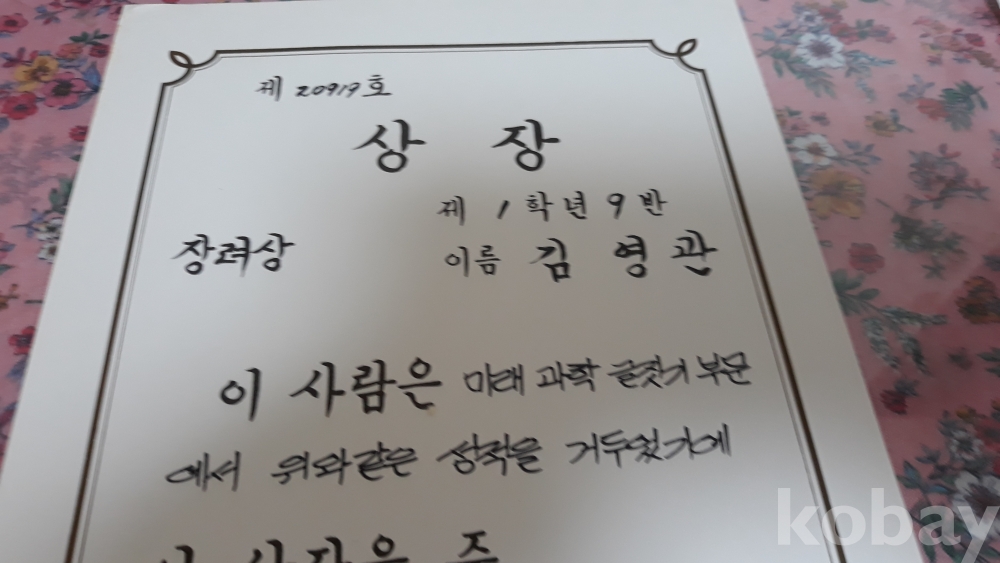 제 20919호
상 장
제 1 학년 9 반
장려상
이름 김 영 관
이 사람은 미래 과학 글짓기 부문
에서 위와같은 성적을 거두었기에
이 상장을 주
kobay